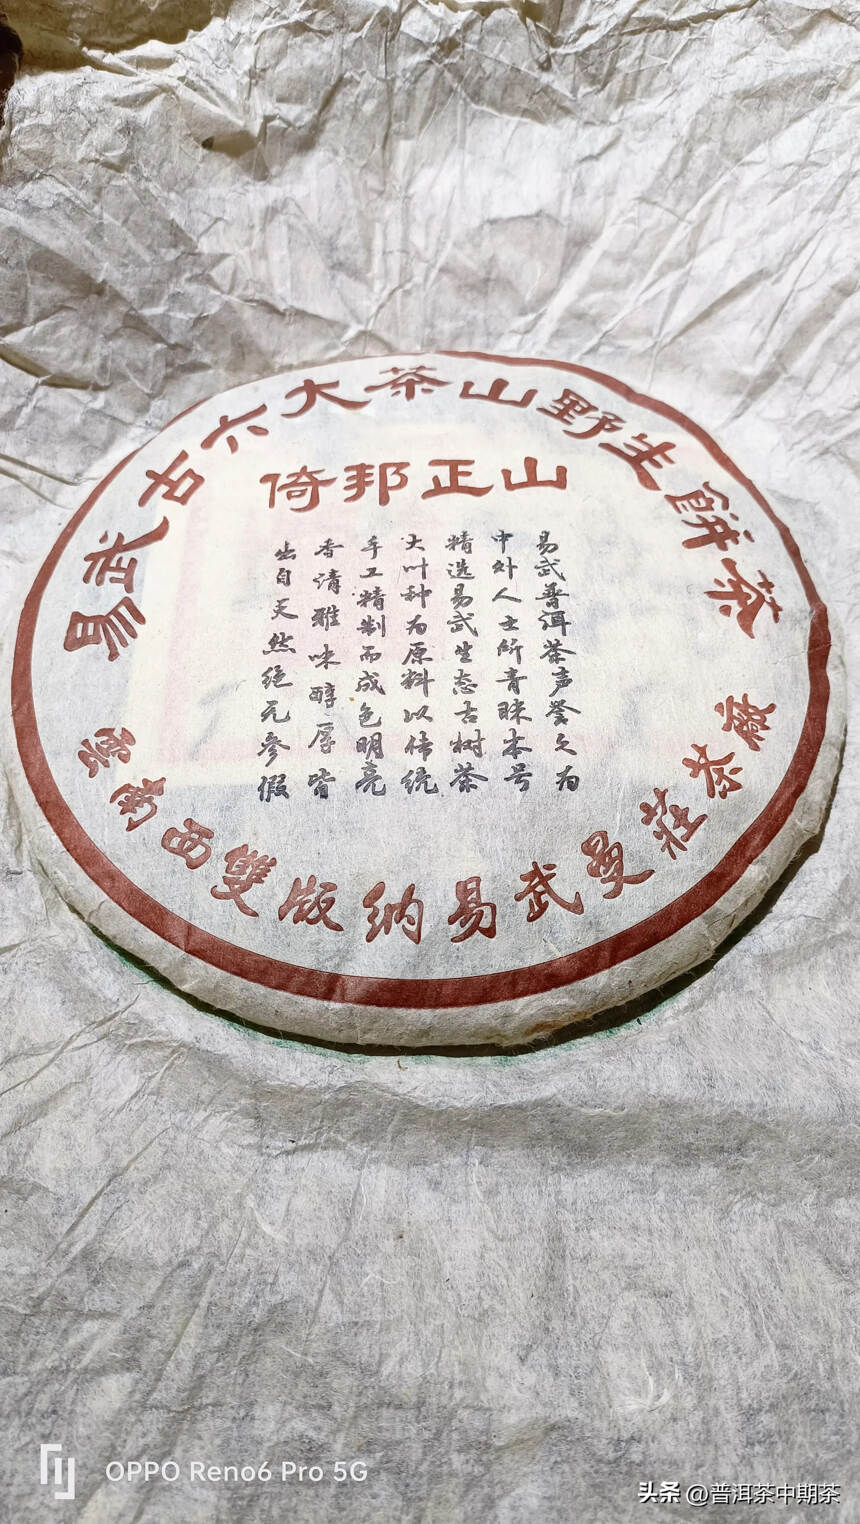 易武古六大茶山野生餅茶
倚邦正山
易武普洱茶声誉久为
中外人士所青睐本号
精选易武生态古树茶
大叶种为原料以传统
手工精制而成色明亮
香清雅味醇厚皆
出自天然绝无参假
雲南西雙版纳易武曼莊茶廠
OPPO Reno6 Pro 5G
头条 @普洱茶中期茶